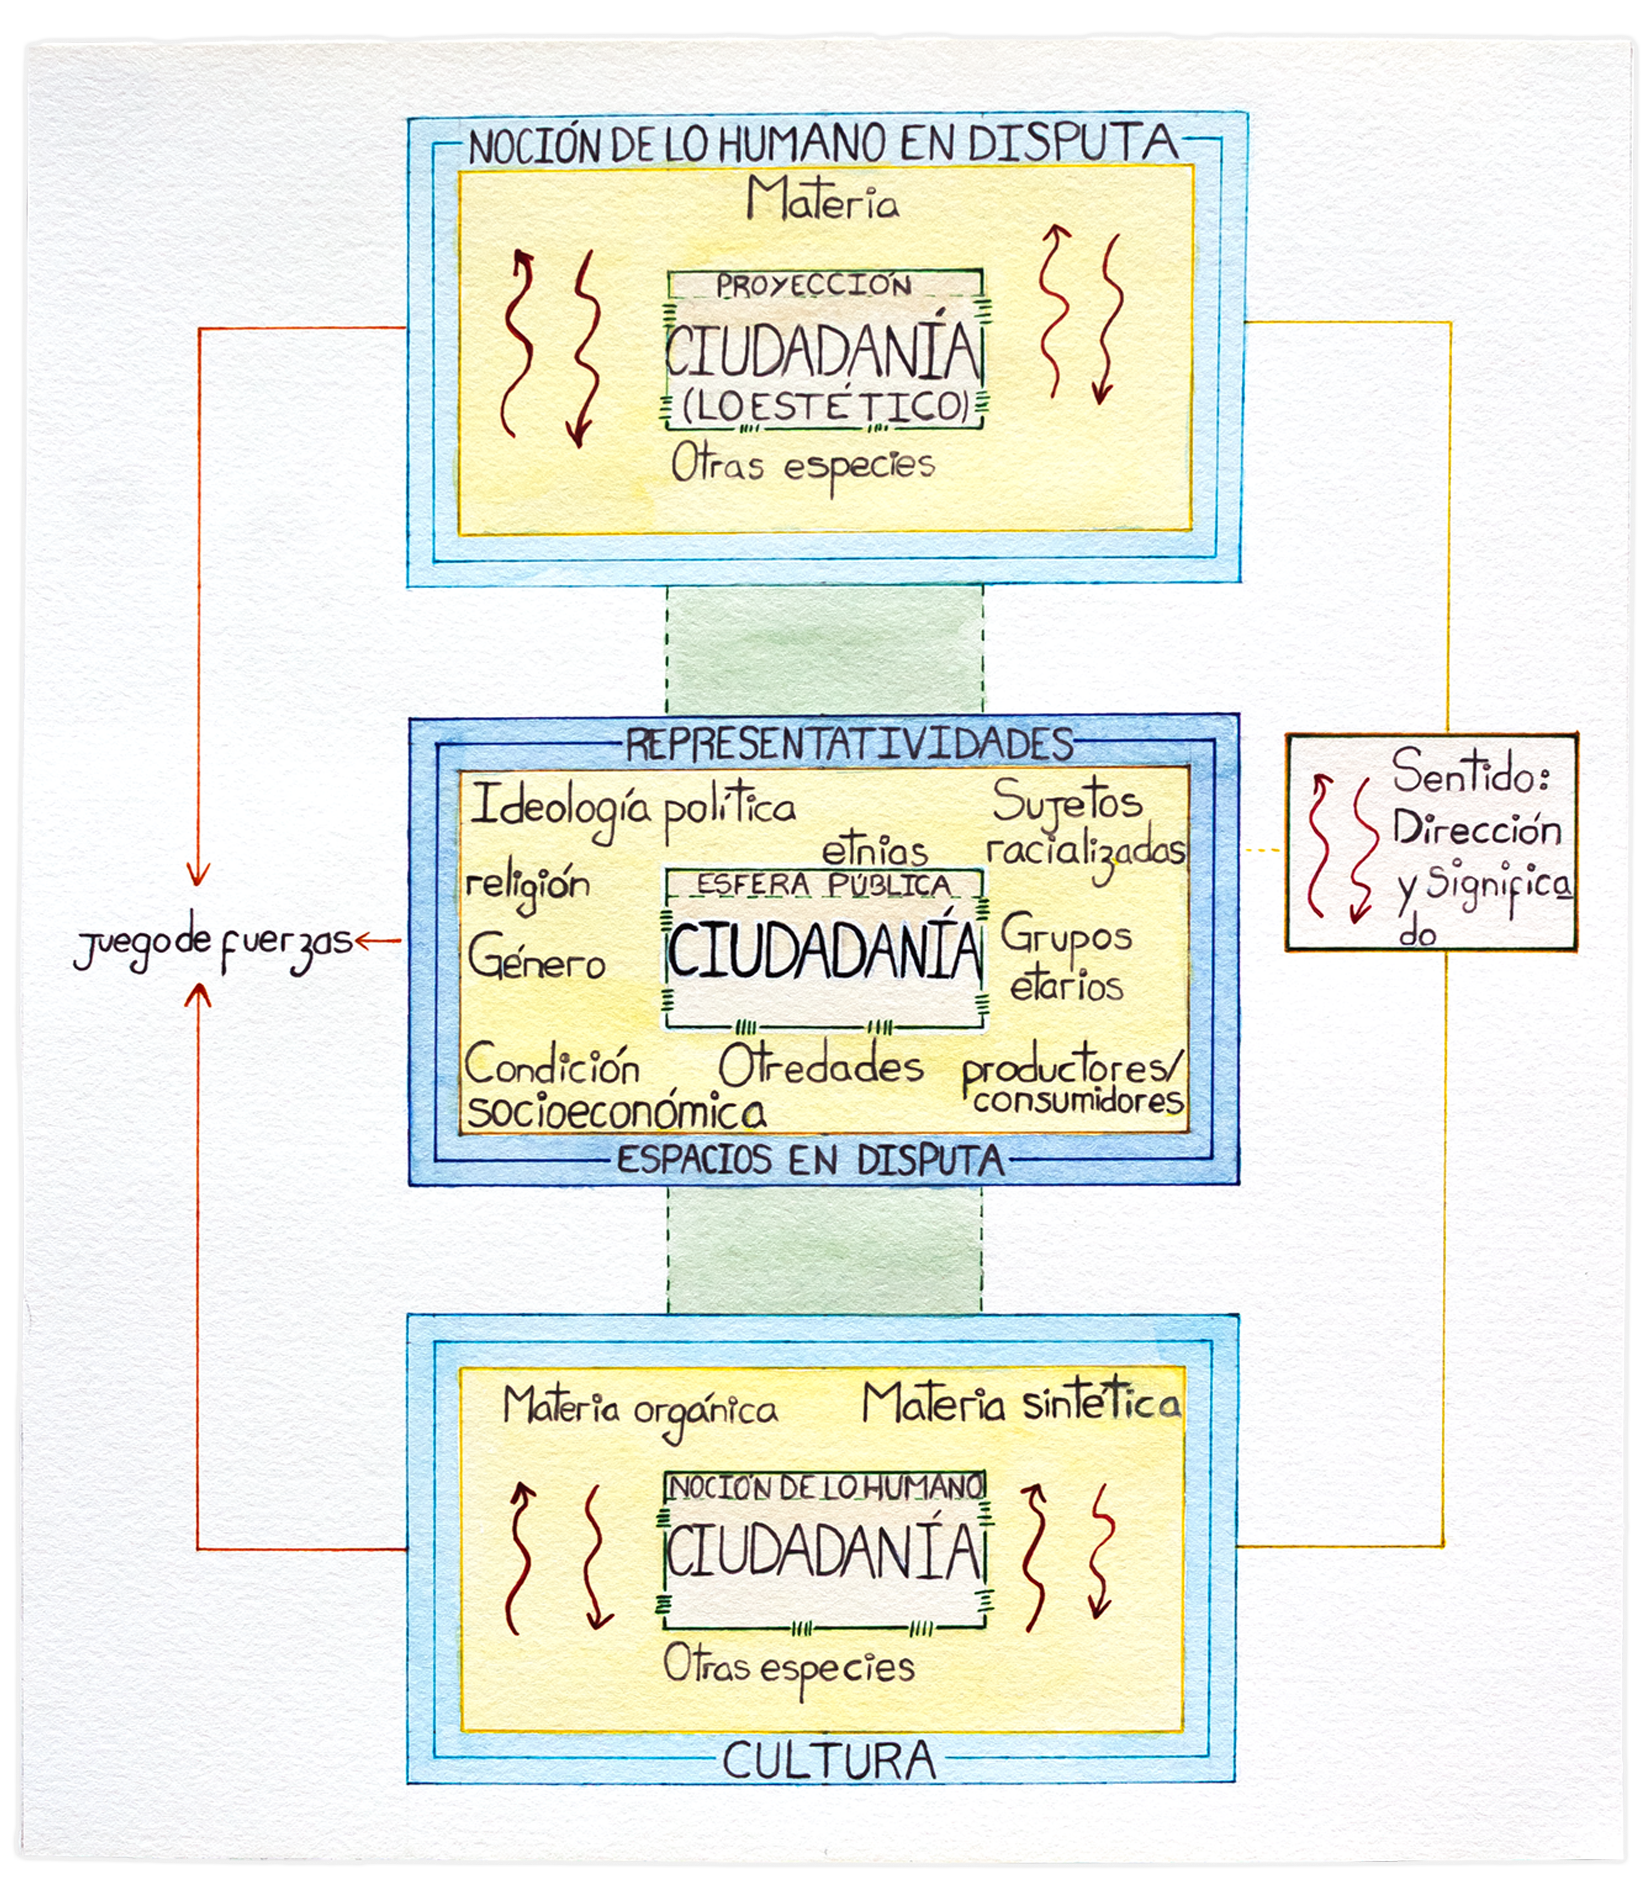 NOCIÓN DE LO HUMANO EN DISPUTA
Materia
PROYECCIÓN
CIUDADANÍA
(LO ESTÉTICO)
Otras especies
REPRESENTATIVIDADES
Ideología política
Sujetos
racializadas
etnias
religión
ESFERA PÚBLICA
CIUDADANÍA
Género
Grupos
etarios
Condición
socioeconómica
Otredades
productores/
consumidores
ESPACIOS EN DISPUTA
juego de fuerzas
Sentido:
Dirección
y Significa
do
Materia orgánica
Materia sintética
NOCIÓN DE LO HUMANO
CIUDADANÍA
Otras especies
CULTURA